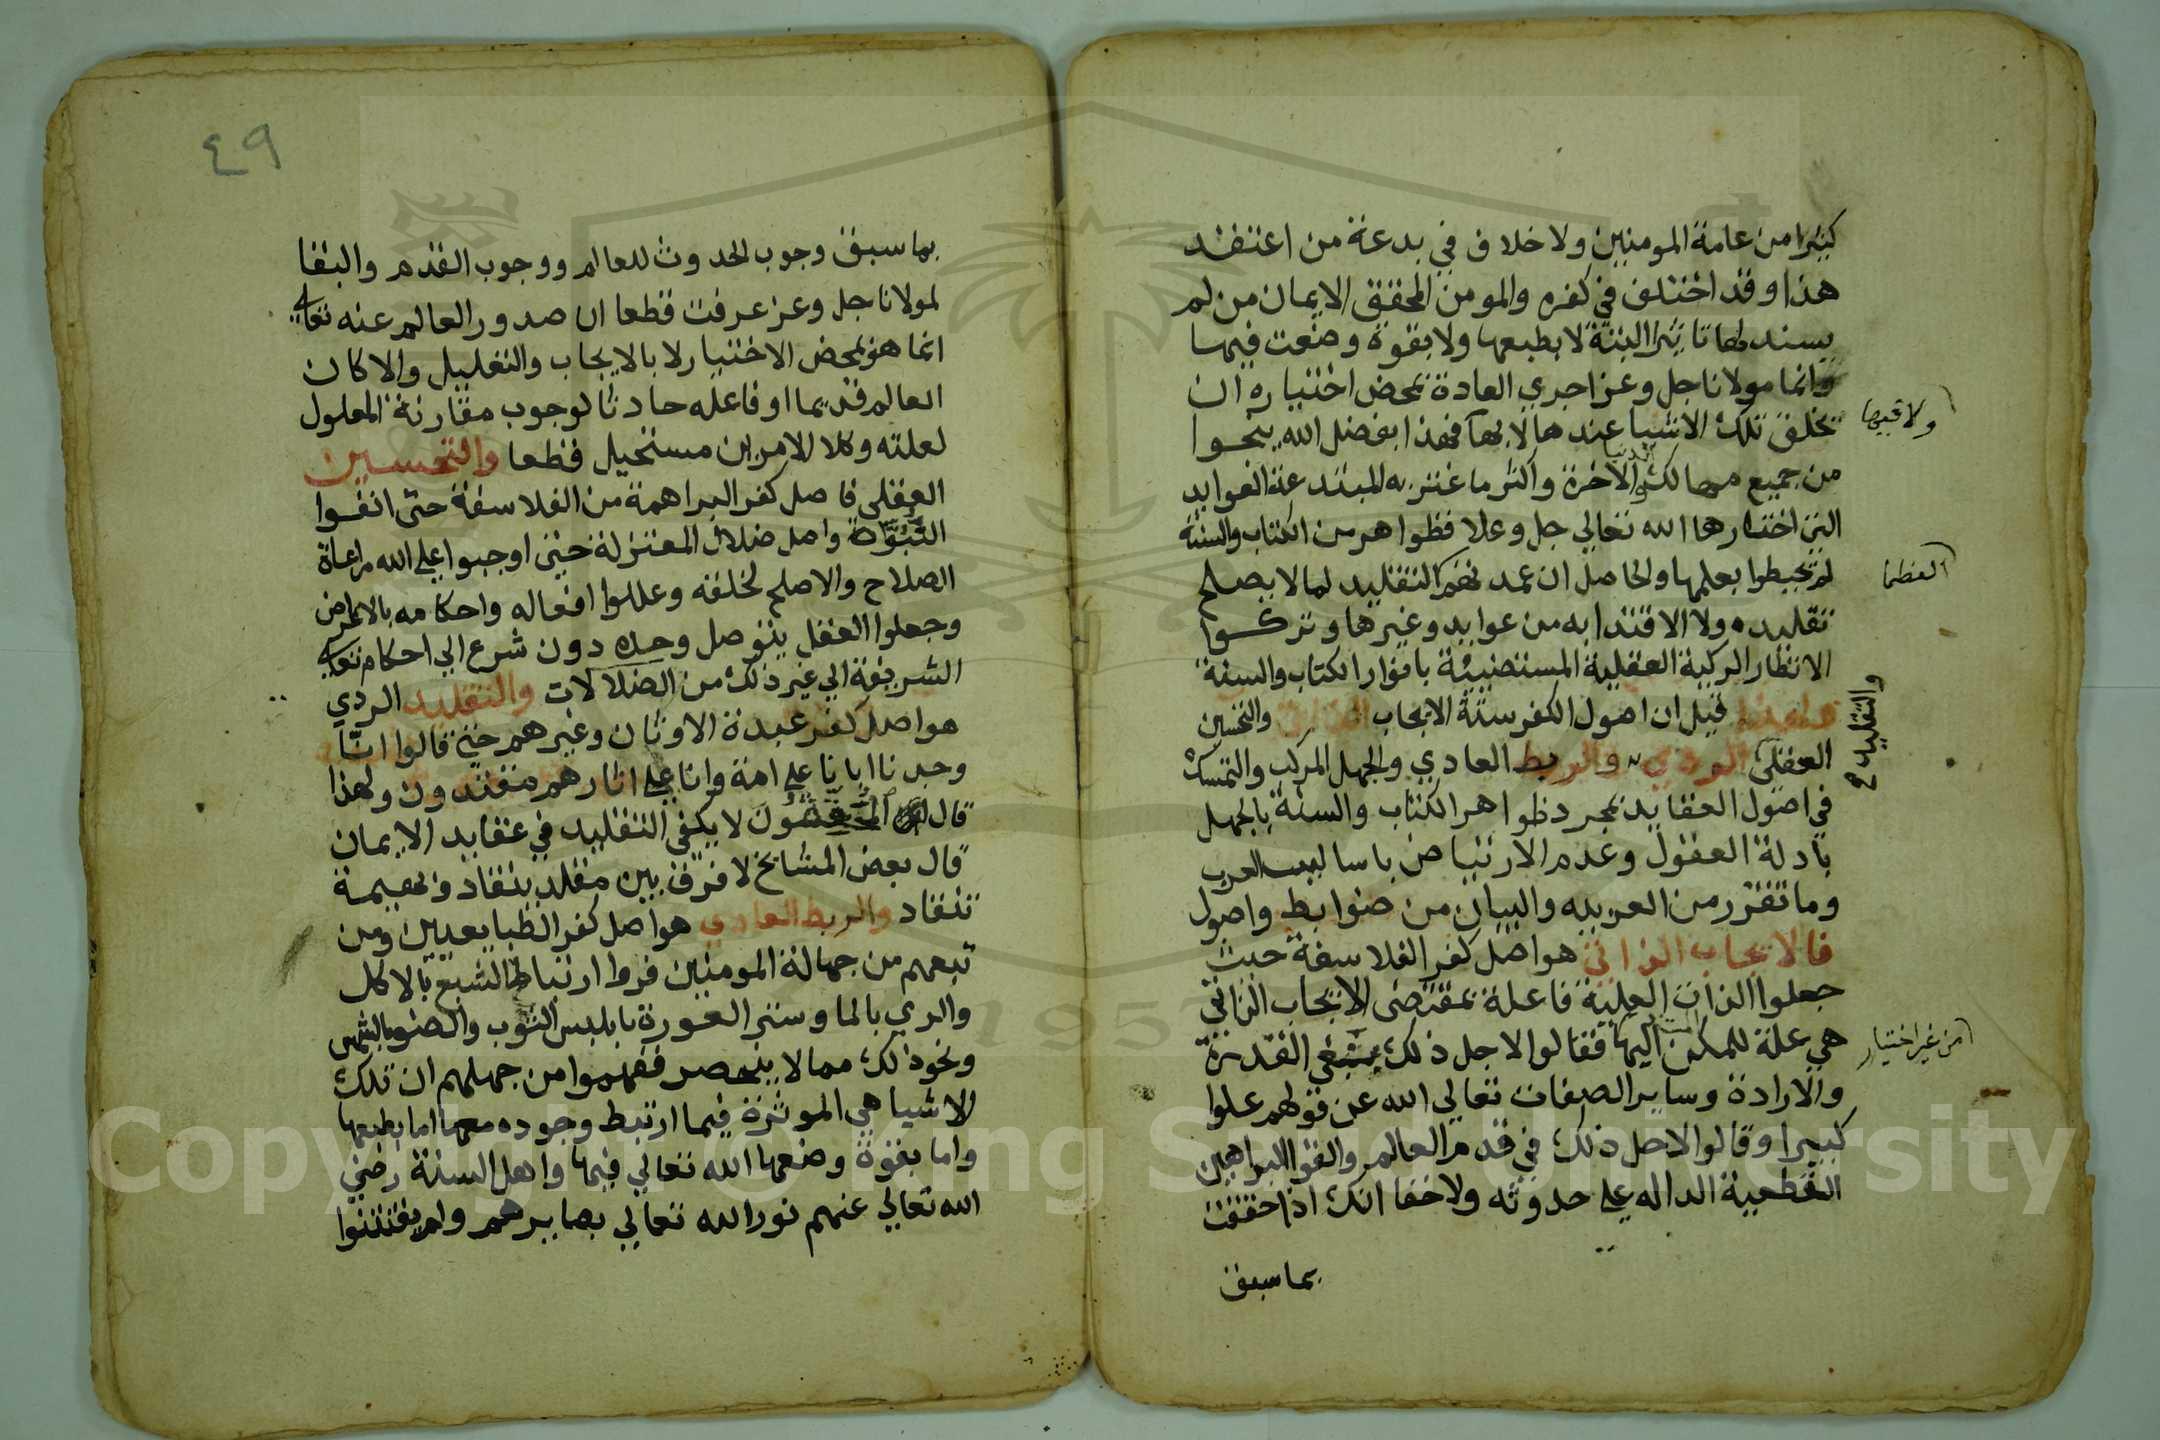 كثيرا من عامة المومنين ولا خلاف في بدعة من اعتقد
هذا وقد اختلف في كفره والمومن المحقق الايمان من لم
يسند لها تاثيرا البتة لا بطبعها ولا بقوة وضعت فيها
وانما مولانا جل وعز اجري العادة بمحض اختياره ان
يخلق تلك الاشيا عندها لا بها
ولا فيها
فهذا بفضل الله ينجوا
من جميع مهالك الدنيا والاخرة واكثر ما اغتر به المبتدعة العوايد
التي اختارها الله تعالي جل وعلا وظواهر من الكتاب والسنة
لم يحيطوا بعلمها والحاصل ان عمدتهم التقليد لما لا يصلح
العظما
تقليده ولا الاقتدا به من عوايد وغيرها وتركوا
الانظار الزكية العقلية المستضيئة بانوار الكتاب والسنة
ولهذا قيل ان اصول الكفر ستة الايجاب الذاتي والتحسين
العقلي
والتقليد
الردي والربط العادي والجهل المركب والتمسك
في اصول العقايد بمجرد ظواهر الكتاب والسنة بالجهل
بادلة العقول وعدم الارتياض باساليب العرب
وما تقرر من العربيه والبيان من ضوابط واصول
فالايجاب الذاتي هو اصل كفر الفلاسفة حيث
جعلوا الذات العلية فاعلة بمقتضى الايجاب الذاتي
هي علة للممكن اليها
من غير اختيار
فقالوا لاجل ذلك بنفي القدرة
والارادة وساير الصفات تعالي الله عن قولهم علوا
كبيرا وقالوا لاجل ذلك في قدم العالم والغوا البراهين
القطعية الداله علي حدوثه ولا خفا انك اذا حققت
بما سبق
٤٩
بما سبق وجوب الحدوث للعالم ووجوب القدم والبقا
لمولانا جل وعز عرفت قطعا ان صدور العالم عنه تعالي
انما هو بمحض الاختيار لا بالايجاب والتعليل والا كان
العالم قديما او فاعله حادثا لوجوب مقارنة المعلول
لعلته وكلا الامرين مستحيل قطعا والتحسين
العقلي فاصل كفر البراهمة من الفلاسفة حتى انفوا
النبوة واصل ضلال المعتزلة حيث اوجبوا علي الله مراعاة
الصلاح والاصلح لخلقه وعللوا افعاله واحكامه بالاغراض
وجعلوا العقل يتوصل وحده دون شرع الي احكام تعالى
الشريفة الي غير ذلك من الضلالات والتقليد الردي
هو اصل كفر عبدة الاوثان وغيرهم حيث قالوا انا
وجدنا ابانا علي امة وانا علي اثارهم مقتدون ولهذا
قال المحققون لا يكفي التقليد في عقايد الايمان
قال بعض المشايخ لا فرق بين مقلد ينقاد وبهيمة
تنقاد والربط العادي هو اصل كفر الطبايعيين ومن
تبعهم من جهالة المومنين فروا ارتباط الشبع بالاكل
والري بالما وستر العورة بابلبس الثوب والضو بالشمس
ونحو ذلك مما لا ينحصر ففهموا من جهلهم ان تلك
الاشيا هي الموثرة فيما ارتبط وجوده معها اما بطبعها
واما بقوة وضعها الله تعالي فيها واهل السنة رضي
الله تعالي عنهم نور الله تعالي بصايرهم ولم يفتتنوا